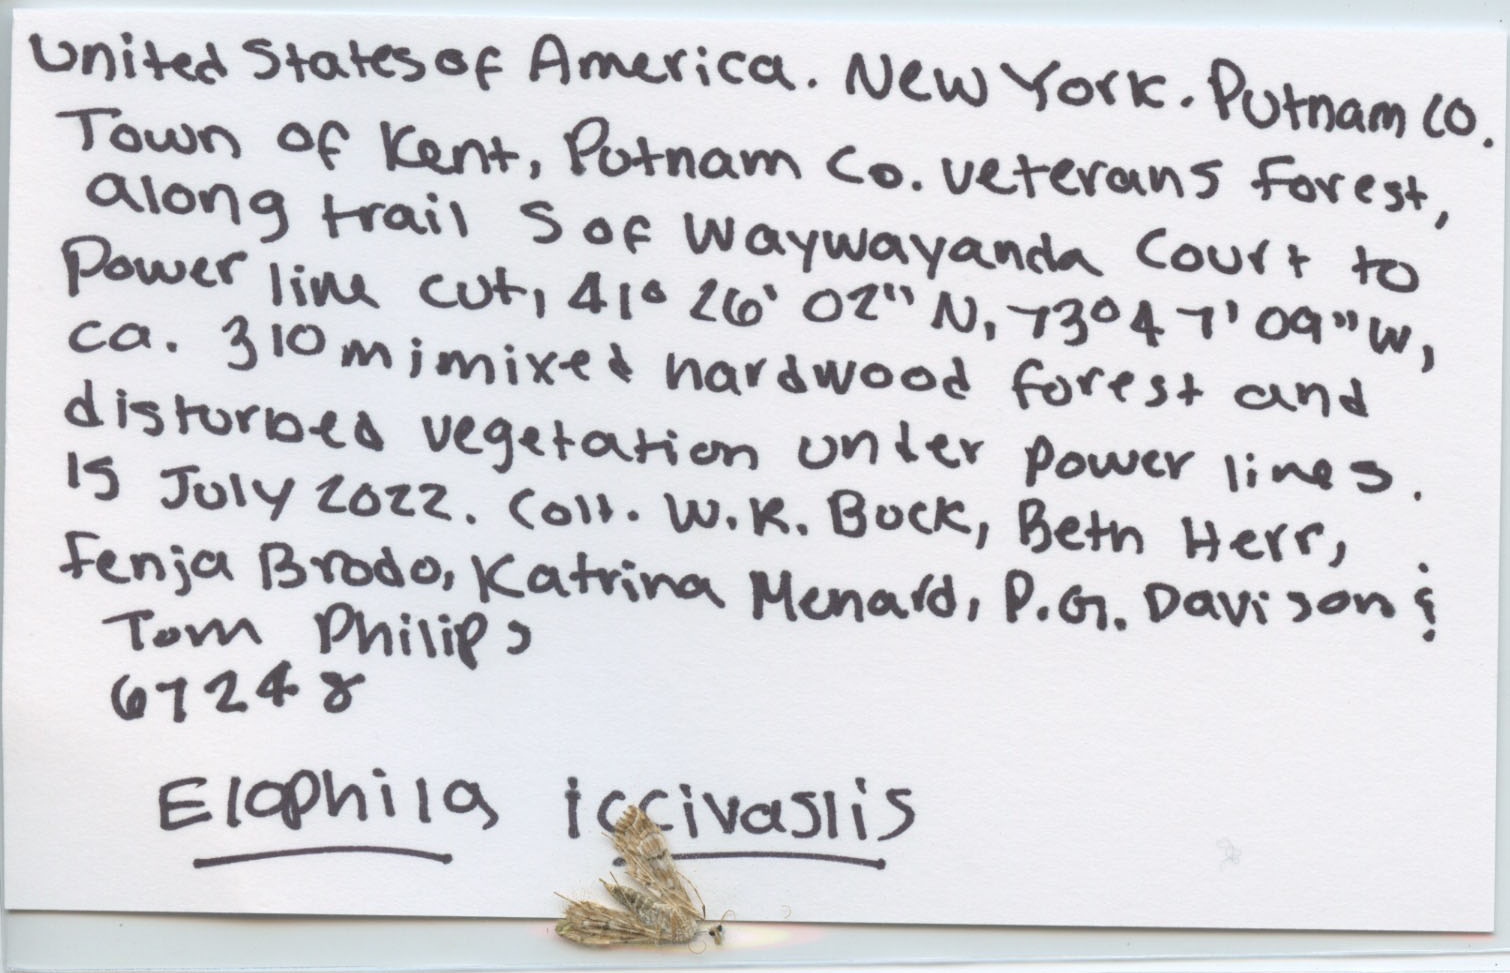 United States of America. New York. Putnam Co.
Town of Kent, Putnam Co. Veterans Forest,
along trail S of Waywayanda Court to
Power line cut, 41° 26' 02" N, 73° 47' 09" W,
ca. 310 m; mixed hardwood forest and
disturbed vegetation under power lines.
15 July 2022. Coll. W.R. Buck, Beth Herr,
Fenja Brodo, Katrina Menard, P.G. Davison &
Tom Philips
67248
Elophila iccivaslis